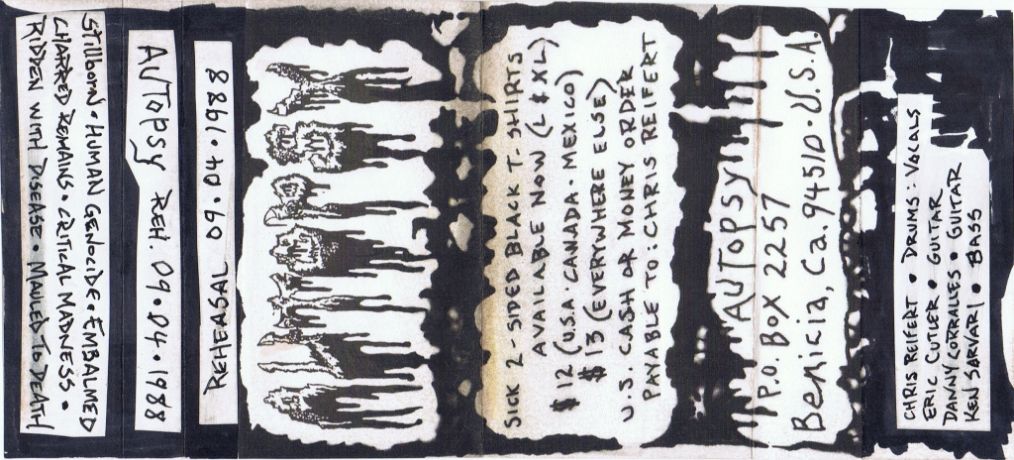 Stillborn • Human Genocide • Embalmed
Charred Remains • Critical Madness •
Ridden with Disease • Mauled To Death
AUTopsy REH. 09.04.1988
REHEASAL 09.04.1988
AUTOPSY
SICK 2-SIDED BLACK T-SHIRTS
AVAILABLE NOW (L & XL)
$12 (U.S.A. CANADA. MEXICO)
$13 (EVERTWHERE ELSE)
U.S. CASH OR MONEY ORDER
PAYABLE TO: CHRIS REIFERT
AUTopsy
P.O. Box 2257
Benicia, Ca. 94510. U.S.A.
CHRIS REIFERT • DRUMS: VOCALS
ERIC CUTLER • GUITAR
DANNY CORRALLES • GUITAR
KEN SORVARI • BASS